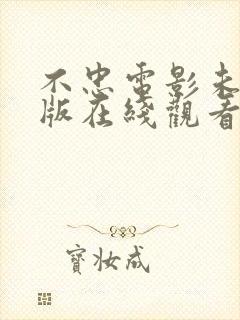 不忠電影未
版在綫觀看
寶妝成